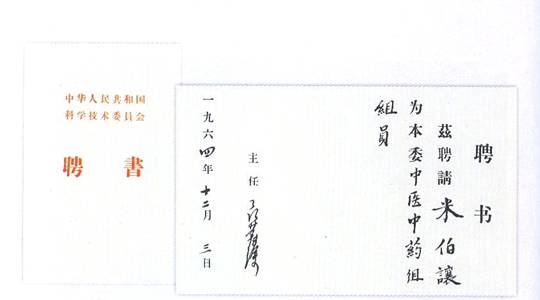 中华人民共和国
科学技术委员会
聘書
聘书
茲聘請米伯讓
为本委中医中葯组
組员
主任
一九六四年十二月三日